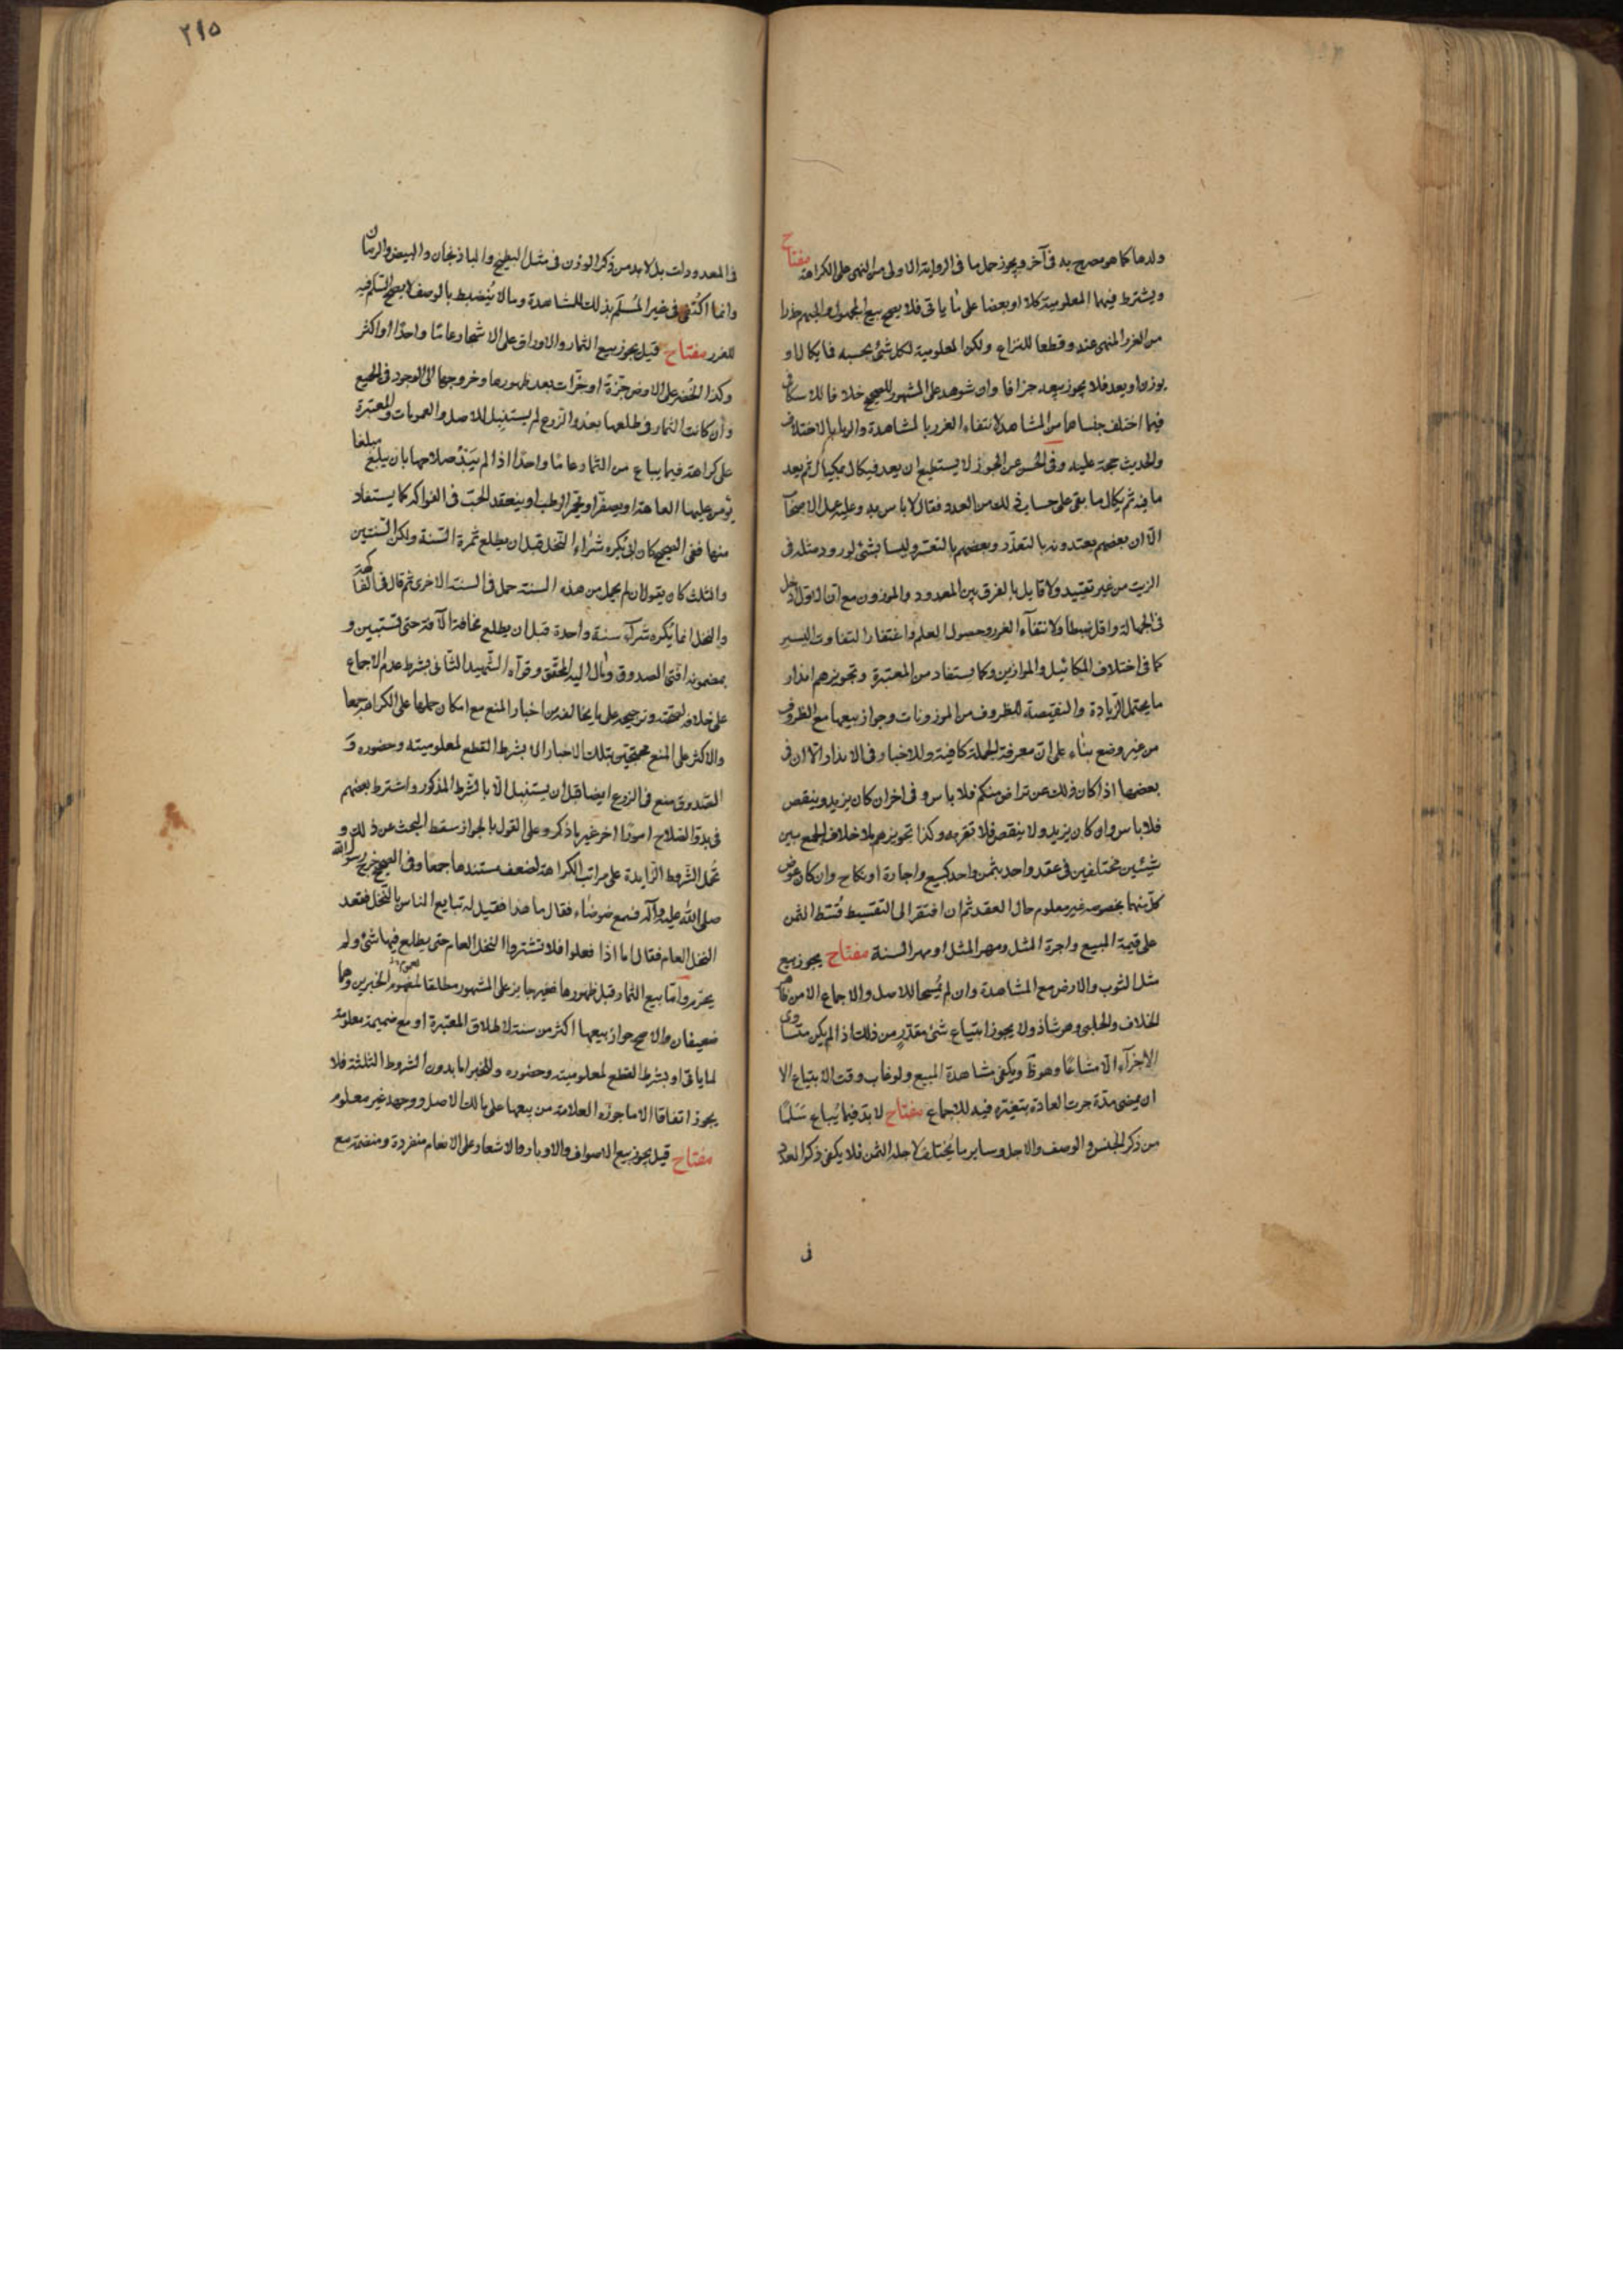 ولدها كما هو مصرح به في آخر ويجوز حمل ما في الرواية الاولى من النهي على الكراهة مفتاح
ويشترط فيهما المعلومية كلا او بعضا على ما ياتي فلا يصح بيع المجهول والمبهم حذرا
من الغرر المنهي عنه وقطعا للنزاع ولكن المعلومية لكل شئ بحسبه فما يكال او
يوزن او يعد فلا يجوز بيعه جزافا وان شوهد على المشهور للصحيح خلافا للاسكافي
فيما اختلف جنساهما من المشاهد لانتفاء الغرر بالمشاهدة والربا بالاختلاف
والحديث حجة عليه وفي الحسن عن الجوز لا يستطيع ان يعد فيكال بمكيال ثم يعد
ما فيه ثم يكال ما بقي على حساب ذلك من العدد فقال لا باس به وعليه عمل الاصحاب
الا ان بعضهم يعتدونه بالتعذر وبعضهم بالتعسر وليسا بشئ لورود مثله في
الزيت من غير تقييد ولا قايل بالفرق بين المعدود والموزون مع ان الاول ادخل
في الجهالة واقل ضبطا ولانتفآء الغرر وحصول العلم واغتفار التفاوت اليسير
كما في اختلاف المكائيل والموازين وكما يستفاد من المعتبرة وتجويزهم اندار
ما يحتمل الزيادة والنقيصة للظروف من الموزونات وجواز بيعها مع الظروف
من غير وضع بناء على ان معرفة الجملة كافية وللاخبار في الاندار الا ان في
بعضها اذا كان ذلك عن تراض منكم فلا باس وفي اخر ان كان يزيد وينقص
فلا باس وان كان يزيد ولا ينقص فلا تقربه وكذا تجويزهم بلا خلاف الجمع بين
شيئين مختلفين في عقد واحد بثمن واحد كبيع واجارة او نكاح وان كان عوض
كل منهما بخصوصه غير معلوم حال العقد ثم ان افتقر الى التقسيط قسط الثمن
على قيمة المبيع واجرة المثل ومهر المثل او مهر السنة مفتاح يجوز بيع
مثل الثوب والارض مع المشاهدة وان لم يمسحا للاصل والاجماع الا من
الخلاف والحلبي وهو شاذ ولا يجوز ابتياع شئ مقدر من ذلك اذا لم يكن متساوي
الاجزآء الا مشاعا وهو ظ ويكفي مشاهدة المبيع ولو غاب وقت الابتياع الا
ان يمضي مدة جرت العادة بتغيره فيه للاجماع مفتاح لا بد فيما يباع سلما
من ذكر الجنس والوصف والاجل وساير ما يختلف لاجله الثمن فلا يكفي ذكر العدد
في
٢١٥
في المعدودات بل لا بد من ذكر الوزن في مثل البطيخ والباذنجان والبيض والرمان
وانما اكتفي في غير المسلم بذلك للمشاهدة وما لا ينضبط بالوصف لا يصح السلم فيه
للغرر مفتاح قيل يجوز بيع الثمار والاوراق على الاشجار عاما واحدا او اكثر
وكذا الخضر على الارض جزة او جزات بعد ظهورها وخروجها الى الوجود في الجميع
وان كانت الثمار في طلعها بعد والزرع لم يستنبل للاصل والعمومات والمعتبرة
على كراهة فيما يباع من الثمار عاما واحدا اذا لم يبد صلاحها بان يبلغ مبلغا
يؤمن عليها العاهة او يصفر او يحمر الرطب او ينعقد الحب في الفواكه كما يستفاد
منها ففي الصحيح كان ابي يكره شراء النخل قبل ان يطلع ثمرة السنة ولكن السنتين
والثلث كان يقول ان لم يحمل من هذه السنة حمل في السنة الاخرى ثم قال في الفاكهة
والنخل انما يكره شرآء سنة واحدة قبل ان يطلع مخافة الآفة حتى تستبين و
بمضمونه افتى الصدوق ومال اليه المحقق وقرآه الشهيد الثاني بشرط عدم الاجماع
على خلافه لصحته وترجيحه على ما يخالفه من اخبار المنع مع امكان حملها على الكراهة جمعا
والاكثر على المنع محتجين بتلك الاخبار الا بشرط القطع لمعلوميته وحضوره و
الصدوق منع في الزرع ايضا قبل ان يستنبل الا بالشرط المذكور واشترط بعضهم
في بدو الصلاح امورا اخر غير ما ذكر وعلى القول بالجواز سقط البحث عن ذلك و
تحمل الشروط الزايدة على مراتب الكراهة لضعف مستندها جمعا وفي الصحيح خرج رسول الله
صلى الله عليه وآله فسمع ضوضاء فقال ما هذا فقيل له تبايع الناس بالنخل فقعد
النخل العام فقال اما اذا فعلوا فلا تشتروا النخل العام حتى يطلع فيها شئ ولم
يحرمه واما بيع الثمار قبل ظهورها فغير جايز على المشهور مطلقا لمفهوم الخبرين وهما
ضعيفان والاصح جواز بيعها اكثر من سنة لاطلاق المعتبرة او مع ضميمة معلومة
لما ياتي او بشرط القطع لمعلوميته وحضوره وللخبر اما بدون الشروط الثلثة فلا
يجوز اتفاقا الا ما جوزه العلامة من بيعها على مالك الاصل ووجهه غير معلوم
مفتاح قيل يجوز بيع الاصواف والاوبار والاشعار على الانعام منفردة ومنضمة مع